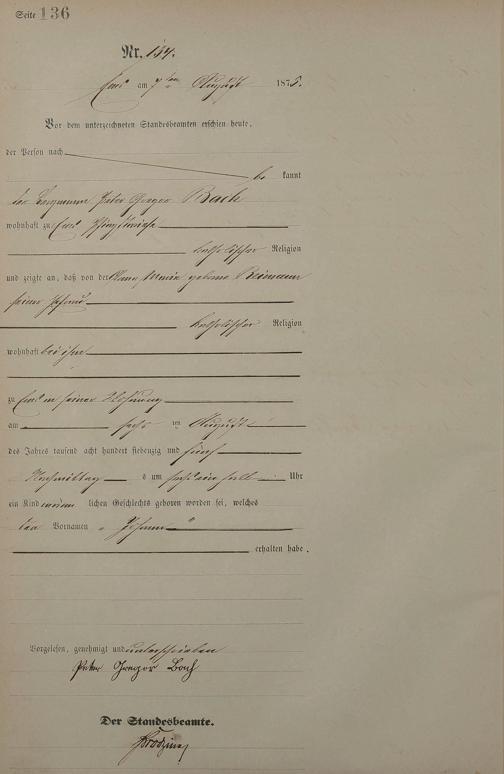 Seite 136
Nr. 134.
Ems am 7ten August 1875.
Vor dem unterzeichneten Standesbeamten erschien heute,
der Person nach
be kannt
der Bergmann Peter Gregor Bach
wohnhaft zu Ems
katholischer Religion
und zeigte an, daß von der Anna Maria geborne Reimann
seiner Ehefrau
katholischer Religion
wohnhaft bei ihm
zu Ems in seiner Wohnung
am sechs ten August
des Jahres tausend acht hundert siebenzig und fünf
Nachmittag s um ein halb Uhr
ein Kind lichen Geschlechts geboren worden sei, welches
Vornamen „Johann“
erhalten habe.
Vorgelesen, genehmigt und unterschrieben
Peter Gregor Bach
Der Standesbeamte.